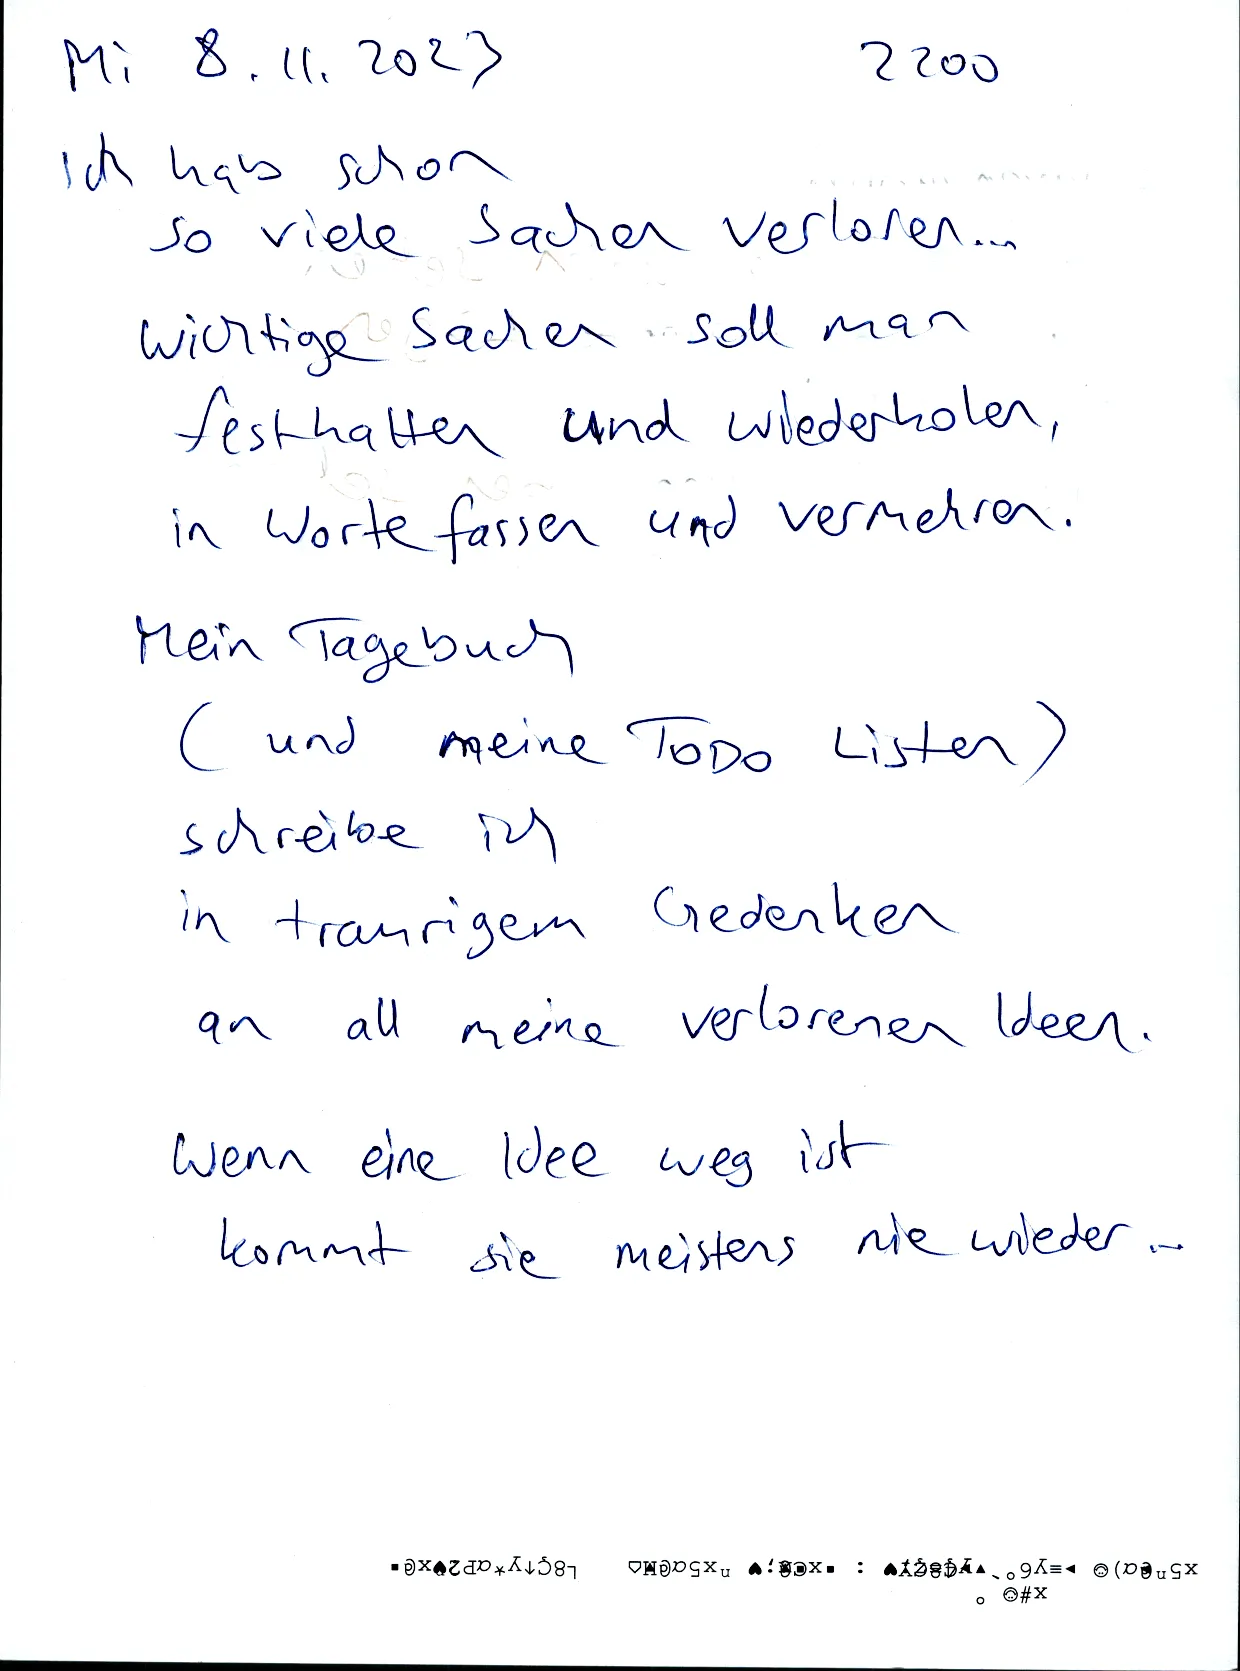 Mi 8.11.2023 2200
Ich hab schon
so viele Sachen verloren...
Wichtige Sachen soll man
festhalten und wiederholen,
in Worte fassen und vermehren.
Mein Tagebuch
(und meine ToDo Listen)
schreibe ich
in traurigem Gedenken
an all meine verlorenen Ideen.
Wenn eine Idee weg ist
kommt sie meistens nie wieder...